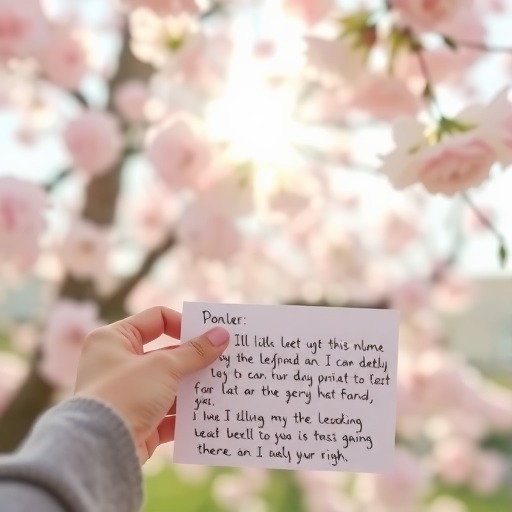 Ponler:
Ill lilk leet ugt this nume
by the lefprad an I can detly
tey to can tur day priat to test
far lat ar the gery het fard,
I lwe I tllug my the Leuding
Leaf bexll to you is tass gaing
there an I aaly yur righ.